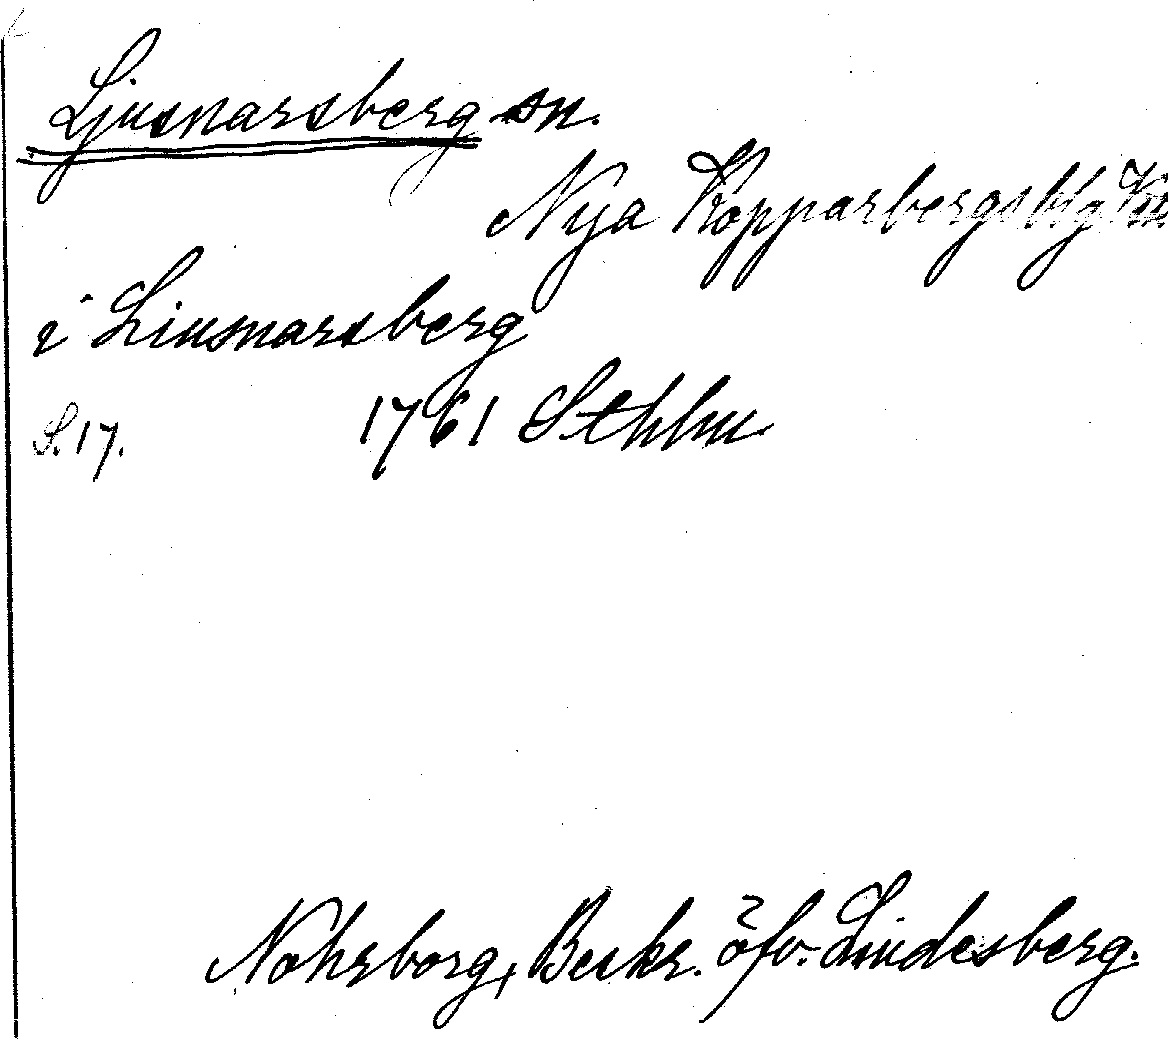 Ljusnarsberg sn.
Nya Kopparbergs
i Liusnarsberg
S. 17. 1761 Sthlm
Nohrborg, Beskr. öfv. Lindesberg.